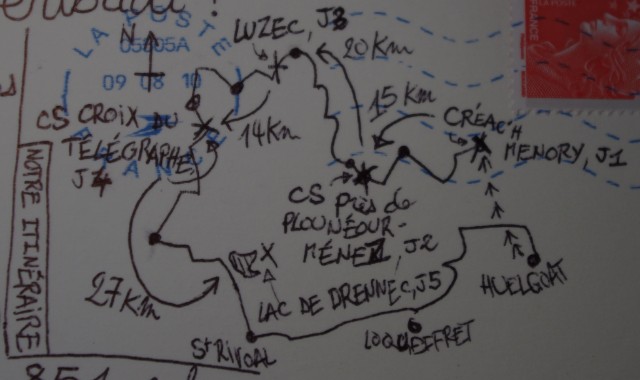 LA POSTE
05805A
09 08 10
N
LUZEC, J3
20 Km
15 Km
CRÉAC'H
MENORY, J1
CS CROIX DU
TÉLÉGRAPHE,
J4
14 Km
CS près de
PLOUNÉOUR-
MÉNEZ, J2
NOTRE ITINÉRAIRE
27 Km
LAC DE DRENNEC, J5
HUELGOAT
St RIVOAL
LOQUEFFRET
FRANCE